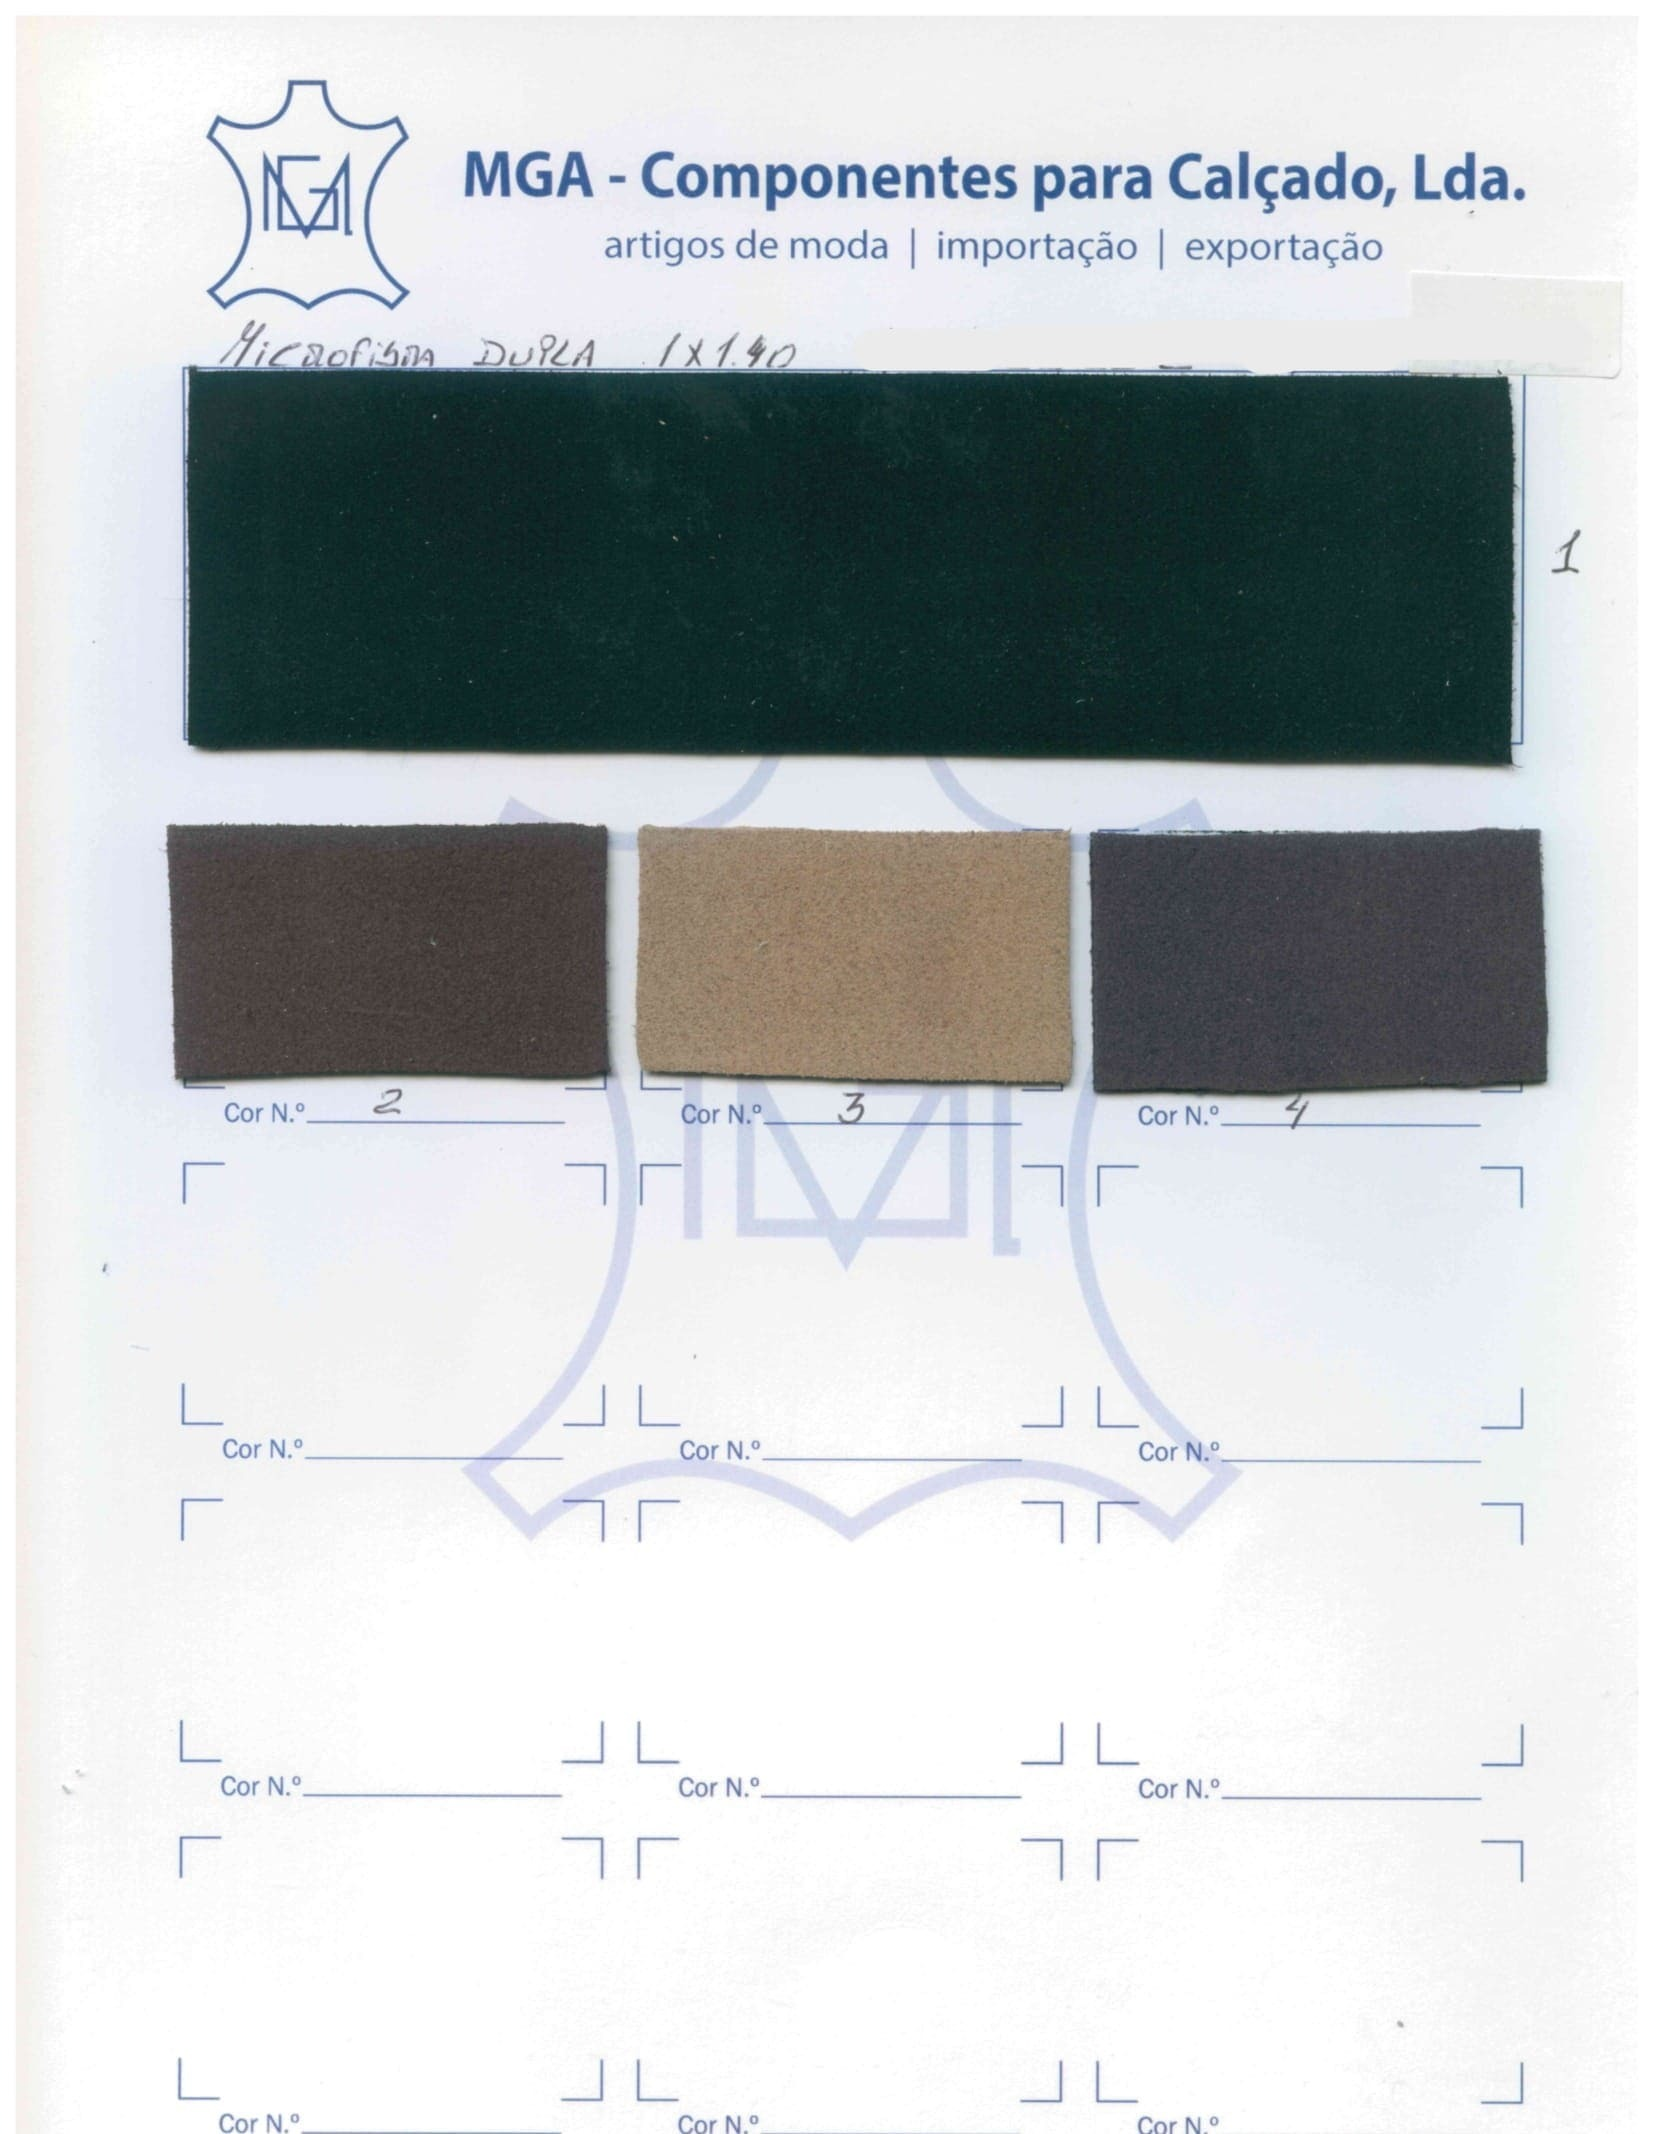 MGA - Componentes para Calçado, Lda.
artigos de moda | importação | exportação
Microfibra DUPLA 1X1.40
1
Cor N.º 2 Cor N.º 3 Cor N.º 4
Cor N.º Cor N.º Cor N.º
Cor N.º Cor N.º Cor N.º
Cor N.º Cor N.º Cor N.º